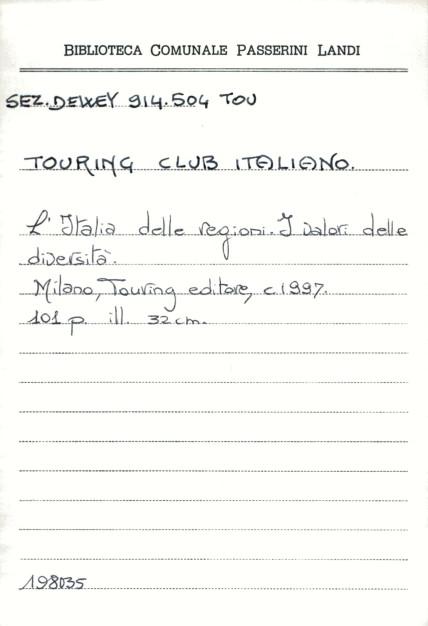 BIBLIOTECA COMUNALE PASSERINI LANDI
SEZ. DEWEY 914.504 TOU
TOURING CLUB ITALIANO.
L'Italia delle regioni. I valori delle
diversità.
Milano, Touring editore, c.1997.
101 p. ill. 32 cm.
198035